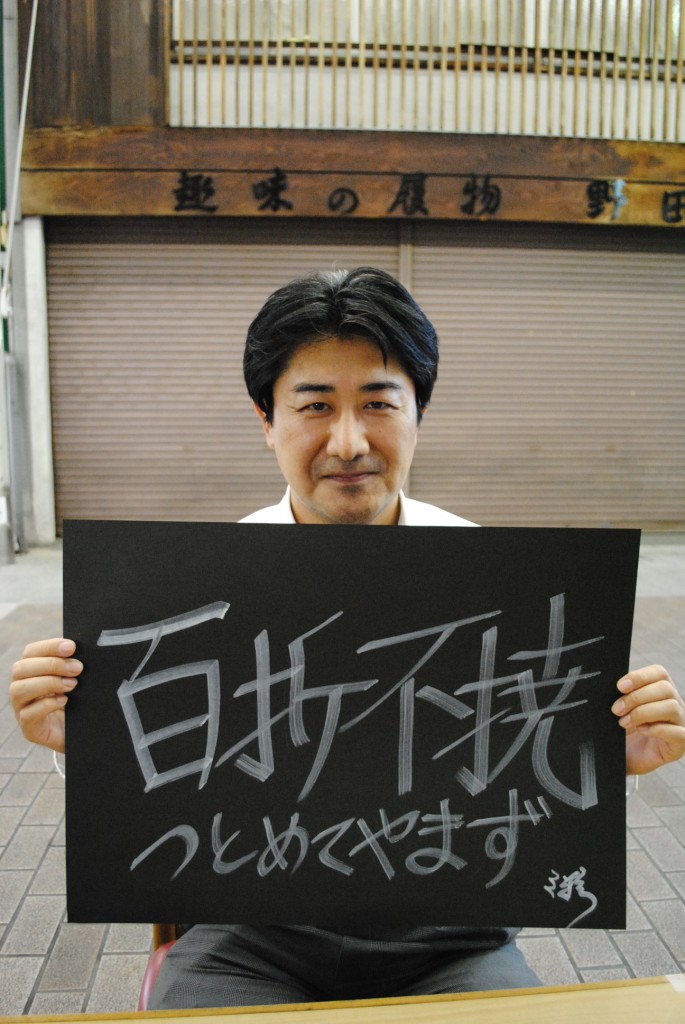 趣味の履物 野田
百折不撓
つとめてやまず